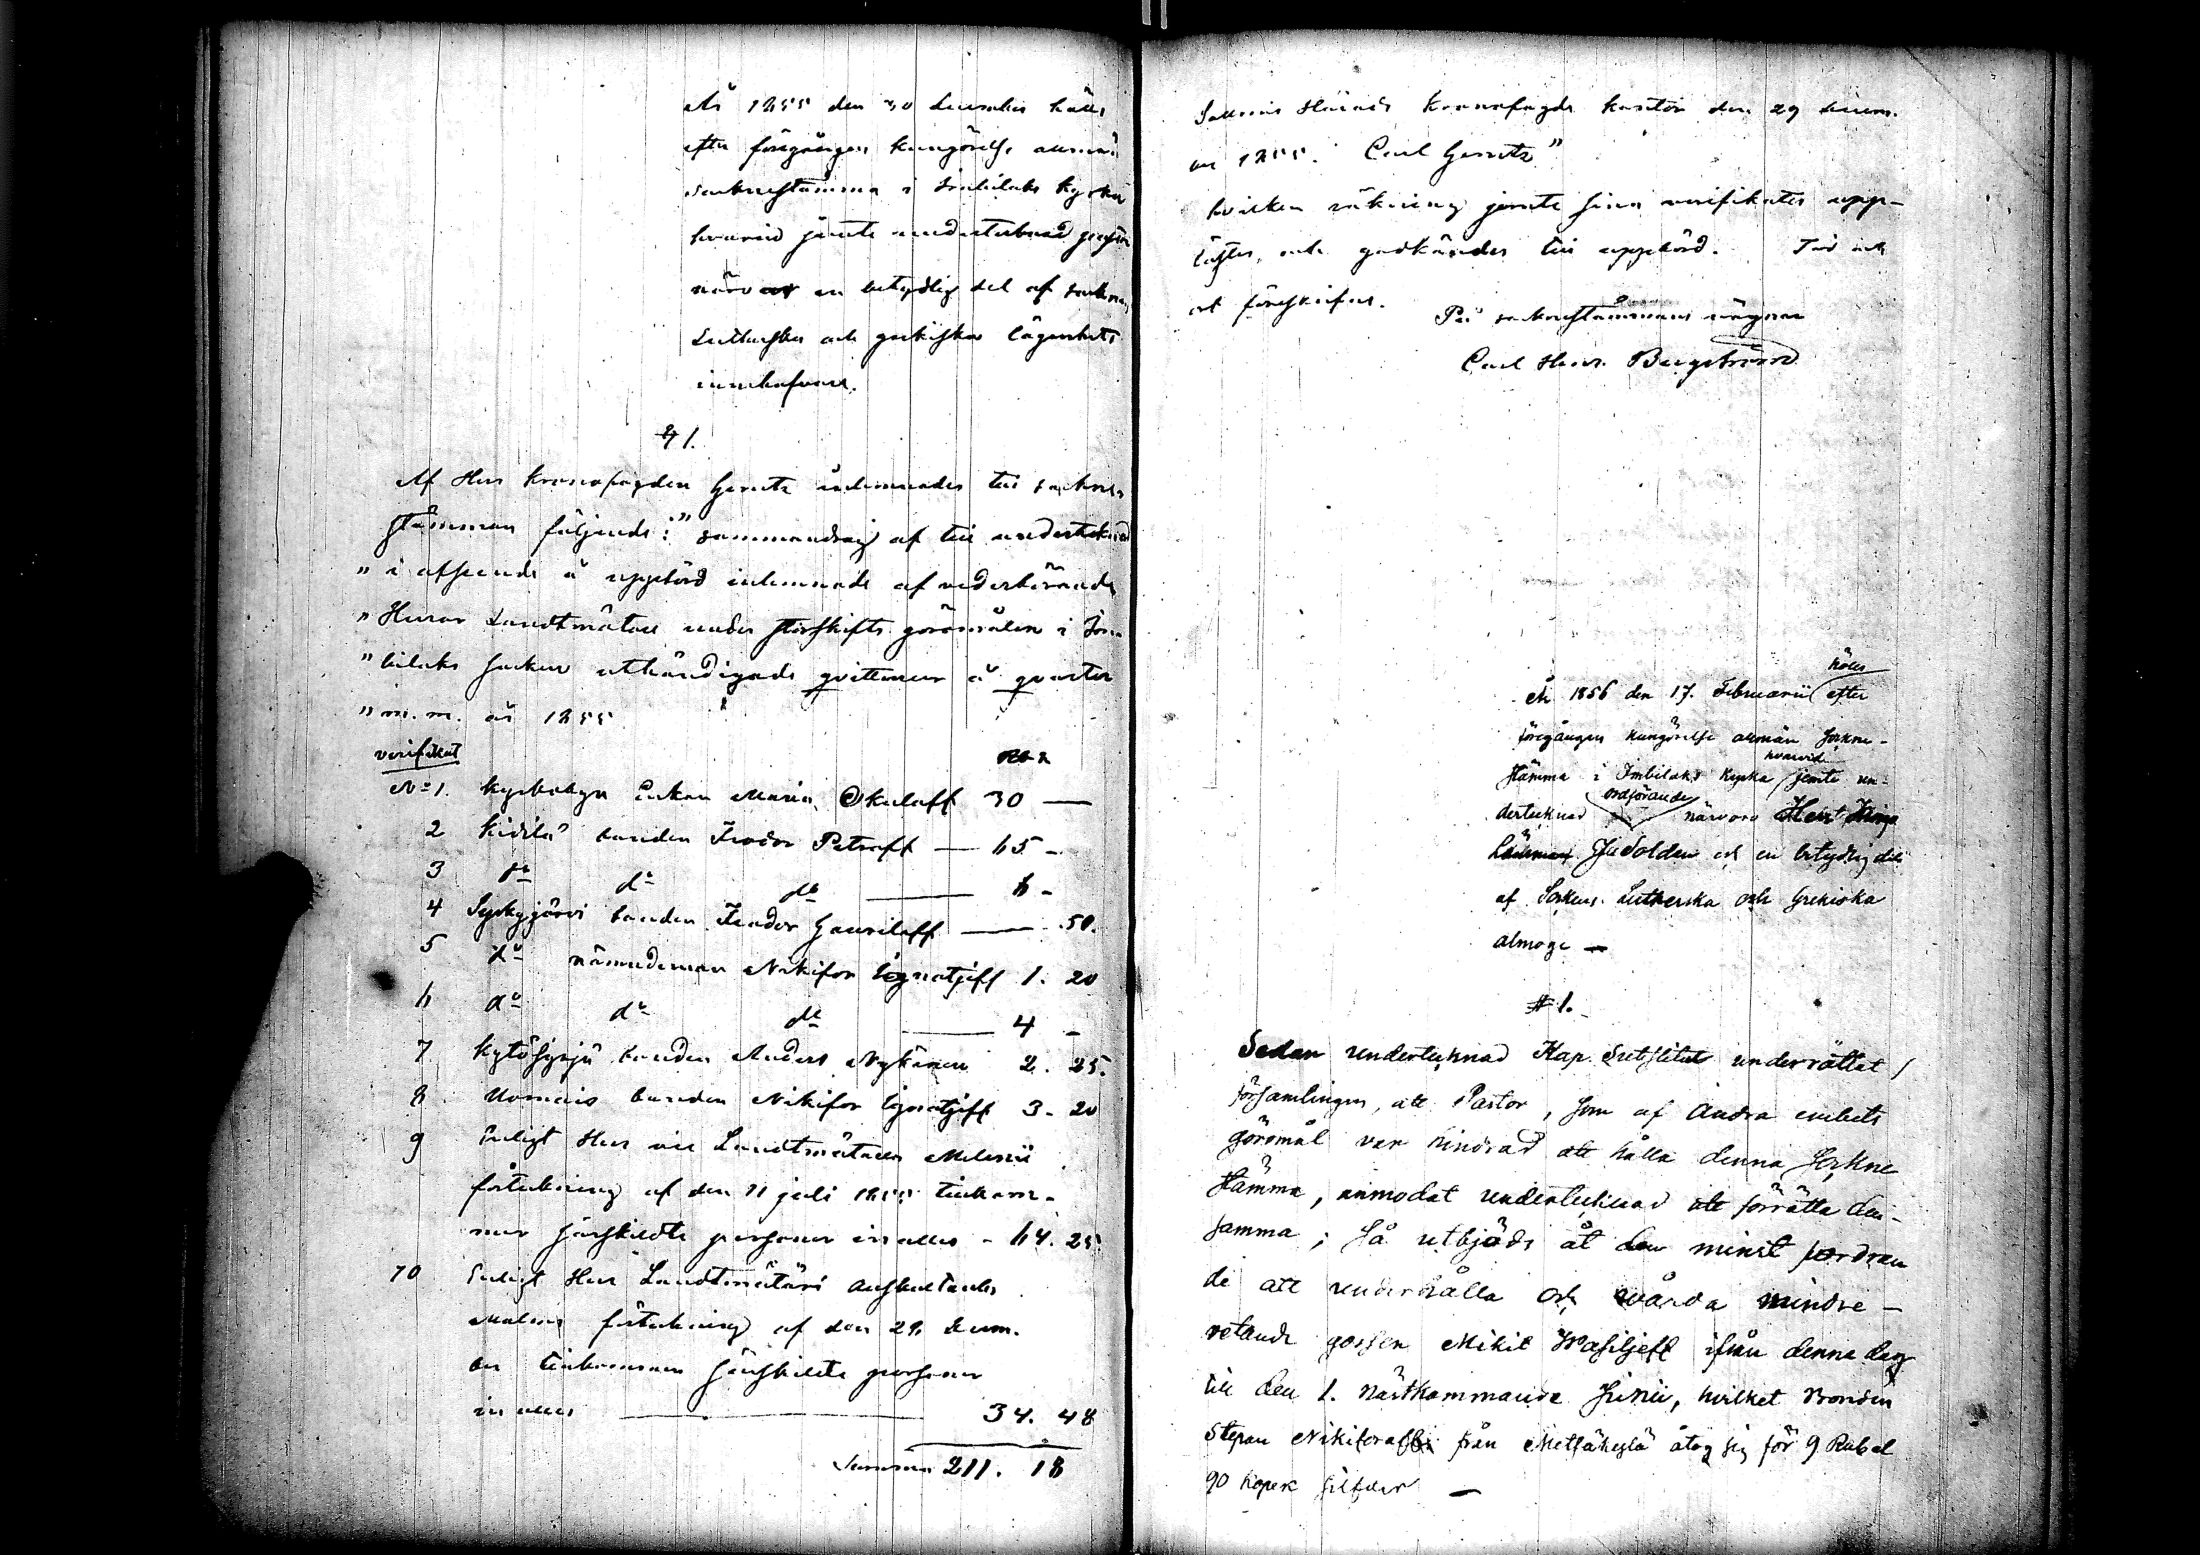 År 1855 den 30 December hålls
efter föregången kungörelse allmän
sockenstämma i Imbilaks kyrka
hvarvid jämte undertecknad
närvar en betydlig del af socknens
Lutherska och grekiska lägenhets
innehafvare.
§ 1.
Af Herr Kronofogden Gerutz inlemnades till sockne
stämman följande: "Sammandrag af till undertecknad
" i afseende å uppbörd inlemnade af vederbörande
" Herrar Landtmätare under storskifts göromålen i Im-
" bilaks socken uthändigade qvittenser å qvarter
" m. m. år 1855
verifikat
No 1. Kyrkobyn Enkan Maria Okuloff 30 —
2 Kidilä bonden Feodor Petroff — 65 -
3 do do do — 6 -
4 Syskyjärvi bonden Feodor Gavriloff — .50.
5 do nämndeman Nikifor Ignatjeff 1. 20
6 do do do — 4 -
7 Kytösyrjä bonden Anders Nykänen 2. 25.
8 Uomais bonden Nikifor Ignatjeff 3. 20
9 Enligt Herr vice Landtmätaren
förteckning af den 11 juli 1855 tillkom-
mer särskildte personer in alles - 64. 25.
10 Enligt Herr Landtmäteri Auskultanten
Malms förteckning af den 29 Decem-
ber tillkommer särskildte personer
in alles — 34. 48
Summa 211. 18
Härads Kronofogde kontor den 29 Decem-
ber 1855. Carl Gerutz"
hvilken räkning jemte sina verifikater upp-
lästes, och godkändes till uppbörd. Tid och
ort föreskrifne.
På sockenstämmans vägnar
Carl Henr. Bergström
År 1856 den 17. Februarii hölls efter
föregången kungörelse allmän Sockne-
stämma i Imbilaks kyrka hvarvid jemte un-
dertecknad ordförande närvoro
Jadolden och en betydlig del
af Sockens Lutherska och Grekiska
almoge —
§ 1.
Sedan undertecknad Kap. Substitut underrättat
församlingen, att Pastor, som af andra embets
göromål var hindrad att hålla denna Sockne
stämma, anmodat undertecknad att förrätta den-
samma; så utbjöds åt den minst fordran
de att underhålla och vårda mindre-
vetande gossen Mikit Wasiljeff ifrån denna dag
till den 1. nästkommande Junii, hvilket Bonden
Stepan Nikiforoff från Metsäkylä åtog sig för 9 Rubel
90 kopek silfver —